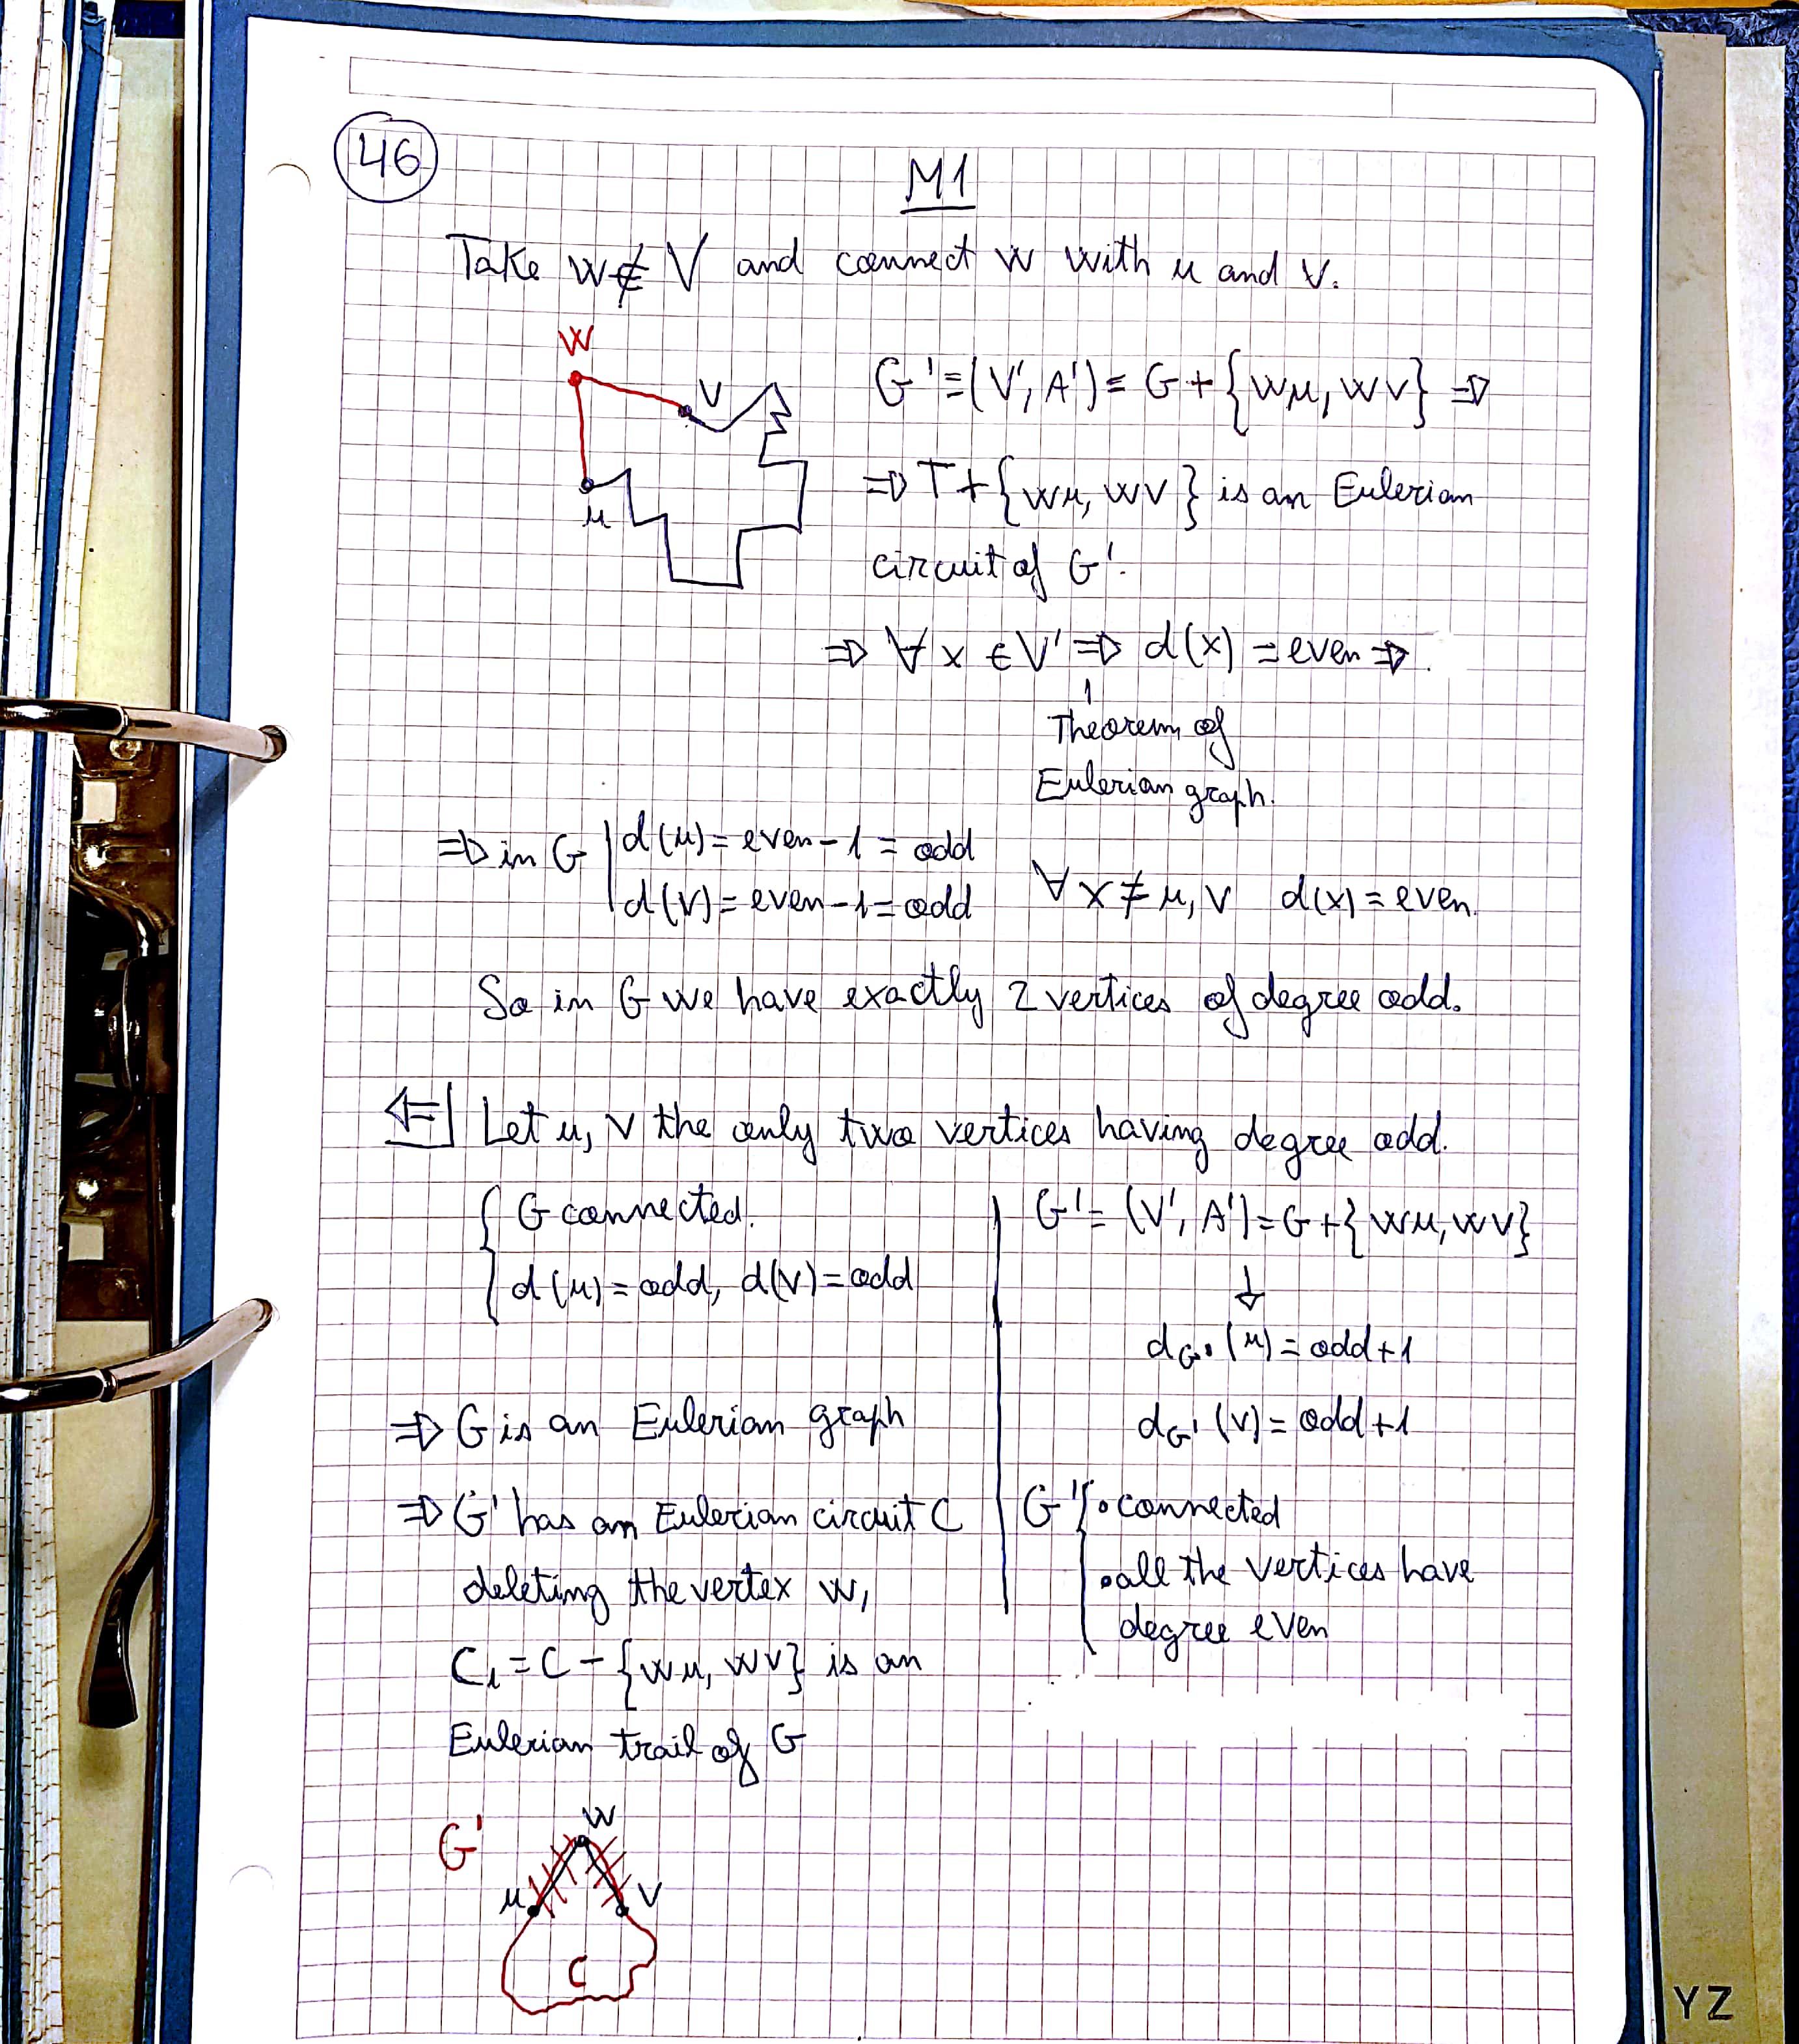 46
M1
Take w ∉ V and connect w with u and v.
w
v
u
G' = (V', A') = G + {wu, wv} ⇒
⇒ T + {wu, wv} is an Eulerian
circuit of G'.
⇒ ∀ x ∈ V' ⇒ d(x) = even ⇒
Theorem of
Eulerian graph.
⇒ in G | d(u) = even - 1 = odd
d(v) = even - 1 = odd
∀ x ≠ u, v d(x) = even.
So in G we have exactly 2 vertices of degree odd.
⇐| Let u, v the only two vertices having degree odd.
{ G connected.
d(u) = odd, d(v) = odd
⇒ G is an Eulerian graph
⇒ G' has an Eulerian circuit C
deleting the vertex w,
C₁ = C - {wu, wv} is an
Eulerian trail of G
G' = (V', A') = G + {wu, wv}
↓
d_G' (u) = odd + 1
d_G' (v) = odd + 1
G' { • connected
• all the vertices have
degree even
G'
w
u
v
C
YZ